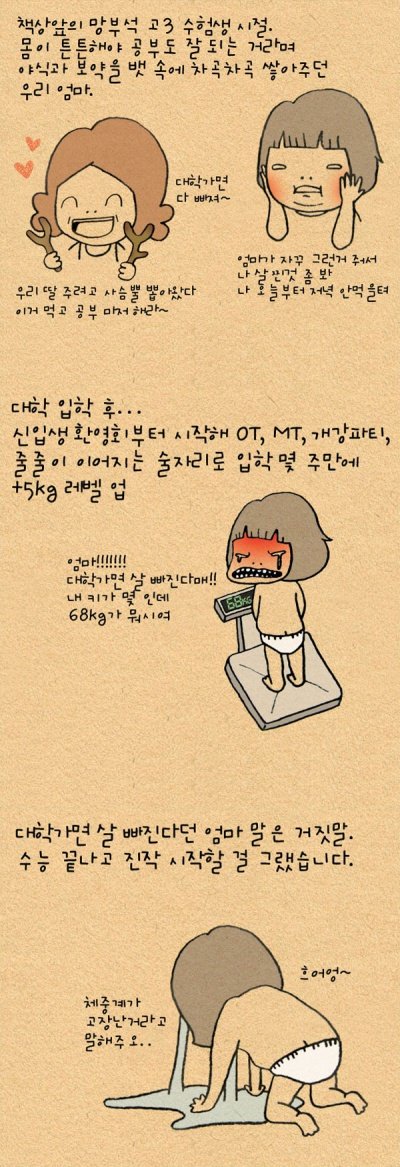 책상앞의 망부석 고3 수험생 시절.
몸이 튼튼해야 공부도 잘 되는 거라며
야식과 보약을 뱃 속에 차곡차곡 쌓아주던
우리 엄마.
대학가면
다 빠져~
우리 딸 주려고 사슴뿔 뽑아왔다
이거 먹고 공부 마저 해라~
엄마가 자꾸 그런거 줘서
나 살 찐것 좀 봐
나 오늘부터 저녁 안먹을텨
대학 입학 후...
신입생 환영회부터 시작해 OT, MT, 개강파티,
줄줄이 이어지는 술자리로 입학 몇 주만에
+5kg 레벨 업
엄마!!!!!!!
대학가면 살 빠진다매!!
내 키가 몇 인데
68kg가 뭐시여
68KG
대학가면 살 빠진다던 엄마 말은 거짓말.
수능 끝나고 진작 시작할 걸 그랬습니다.
흐어엉~
체중계가
고장난거라고
말해주오..